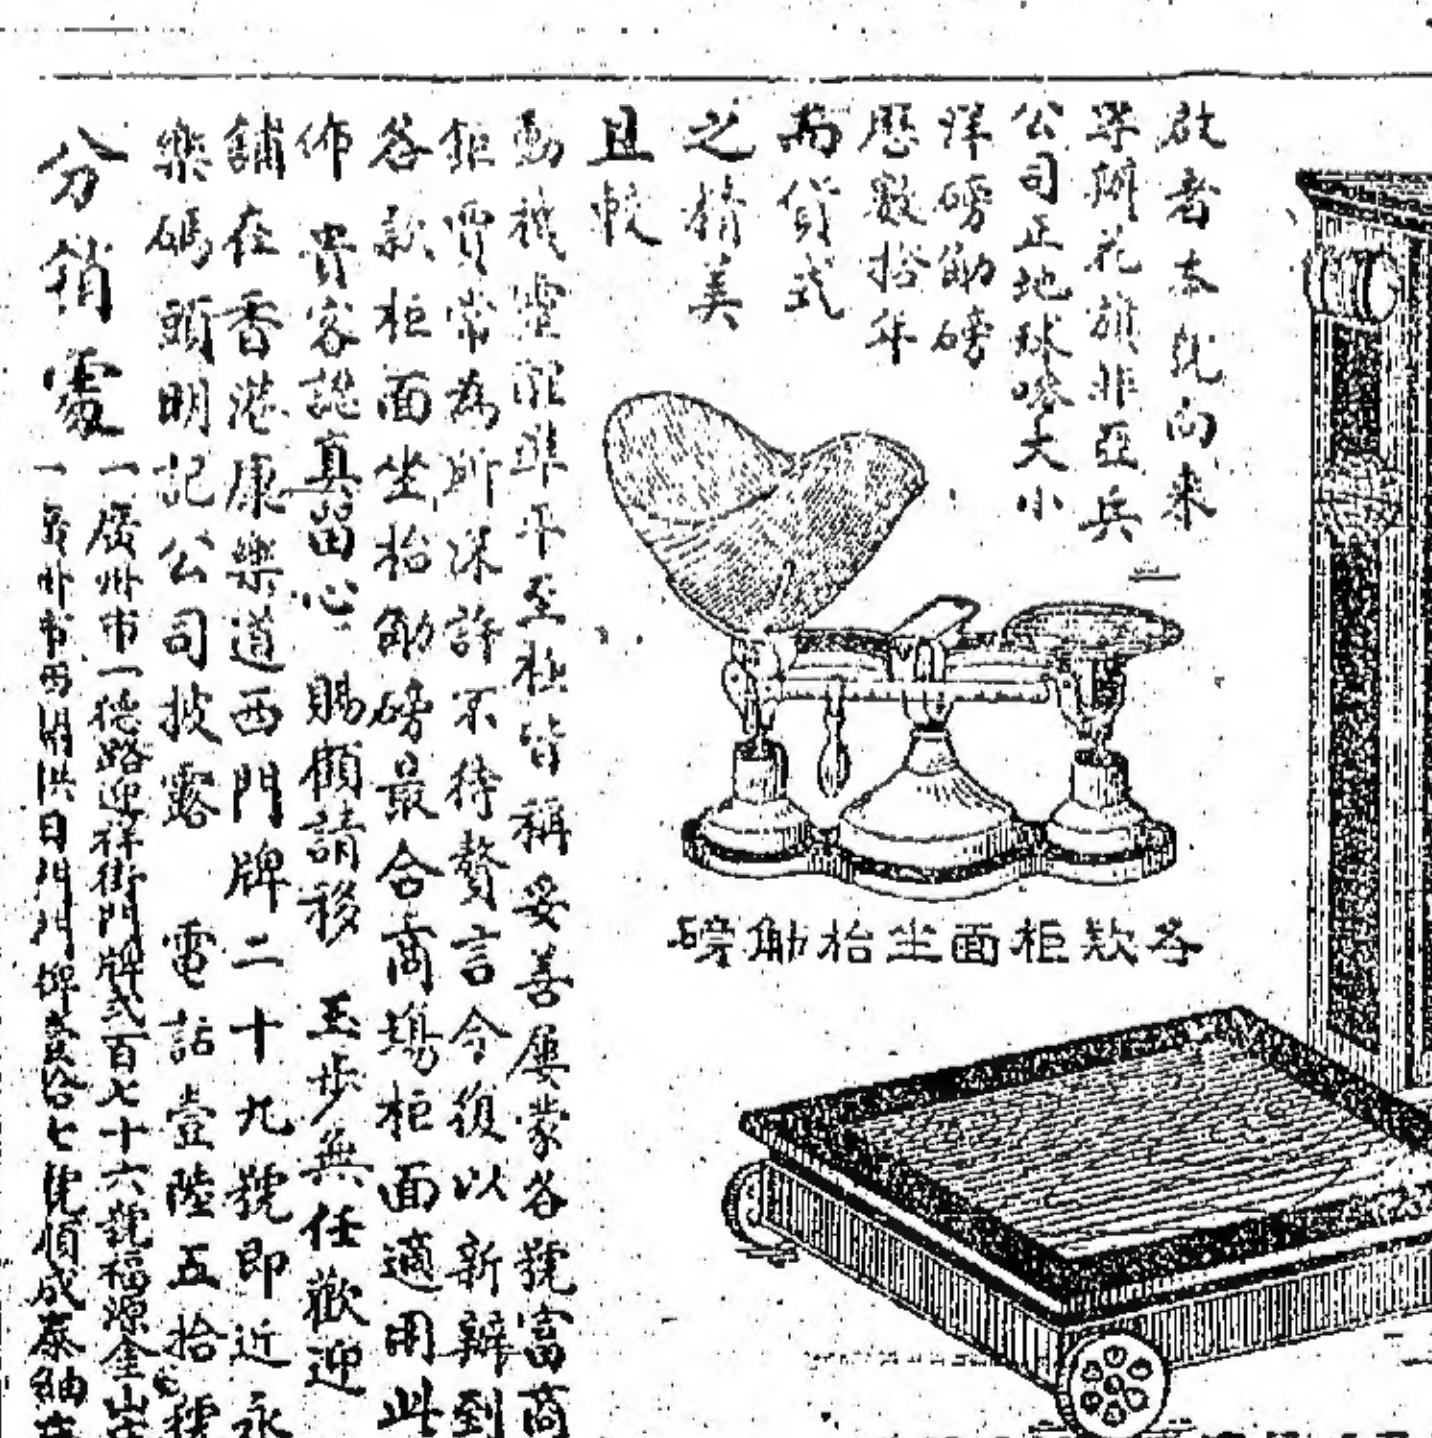 啟者本號向來
專辦花旗非亞兵
公司正地球嘜大小
洋磅觔磅
歷數拾年
而貨式
之精美
且較
動機靈胒準平至極皆稱妥善屢蒙各號富商
鉅賈常為所深許不待贅言今復以新辦到
各款柜面坐枱觔磅最合商塲柜面適用此
佈 貴客認真留心 賜顧請移 玉步無任歡迎
舖在香港康樂道西門牌二十九號即近永
樂碼頭明記公司披露 電話壹陸五拾號
分銷處
一廣州市一德路迎祥街門牌弍百七十六號福源金山庄
一廣州市西關洪日門牌壹拾七號順成泰紬庄
各款柜面坐枱觔磅